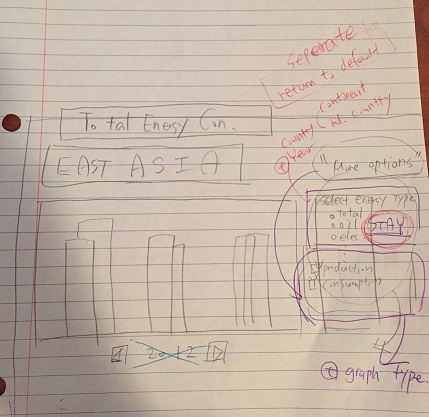 seperate
return to default
continent
country
ind. country
+ Year
Total Energy Con.
"More options"
EAST ASIA
Select Energy Type
Total
oil
elec
STAY
production
consumption
2012
+ graph type.